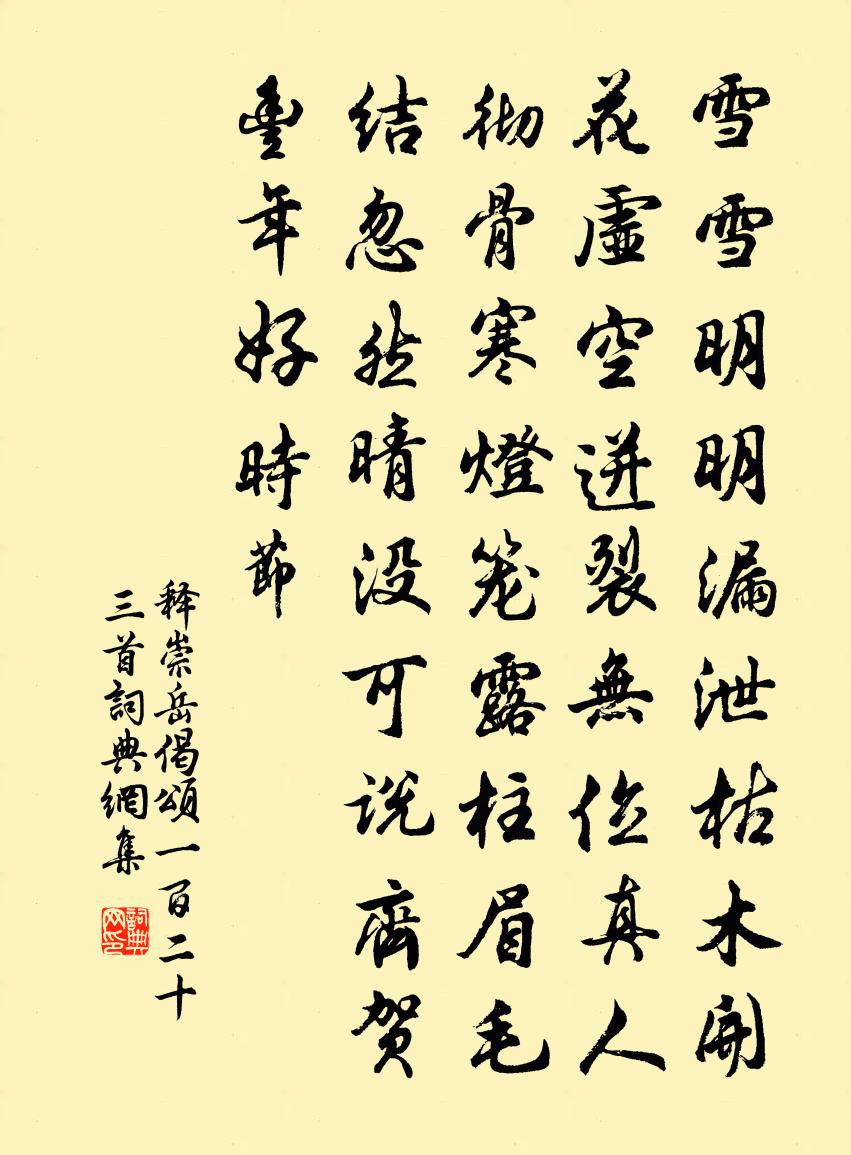 雪雪明明漏泄枯木開
花虛空迸裂無位真人
彻骨寒燈笼露柱眉毛
结忽然晴没可说齊贺
豊年好時節
释崇岳偈頌一百二十
三首詞典網集
詞典
网印